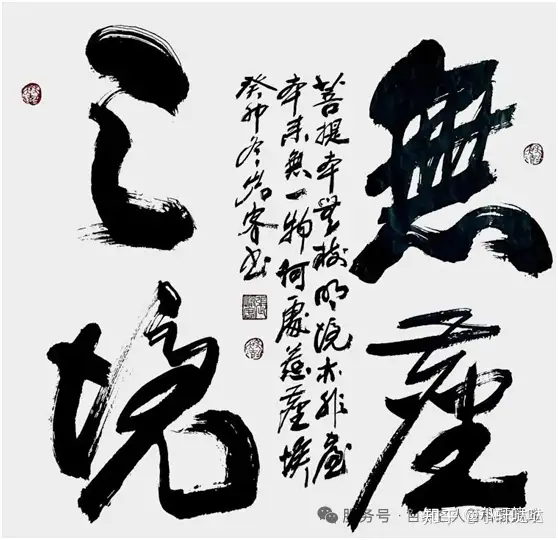 無塵
之境
菩提本無樹明鏡亦非臺
本來無一物何處惹塵埃
癸卯冬岩客书
服务号 ·
知乎